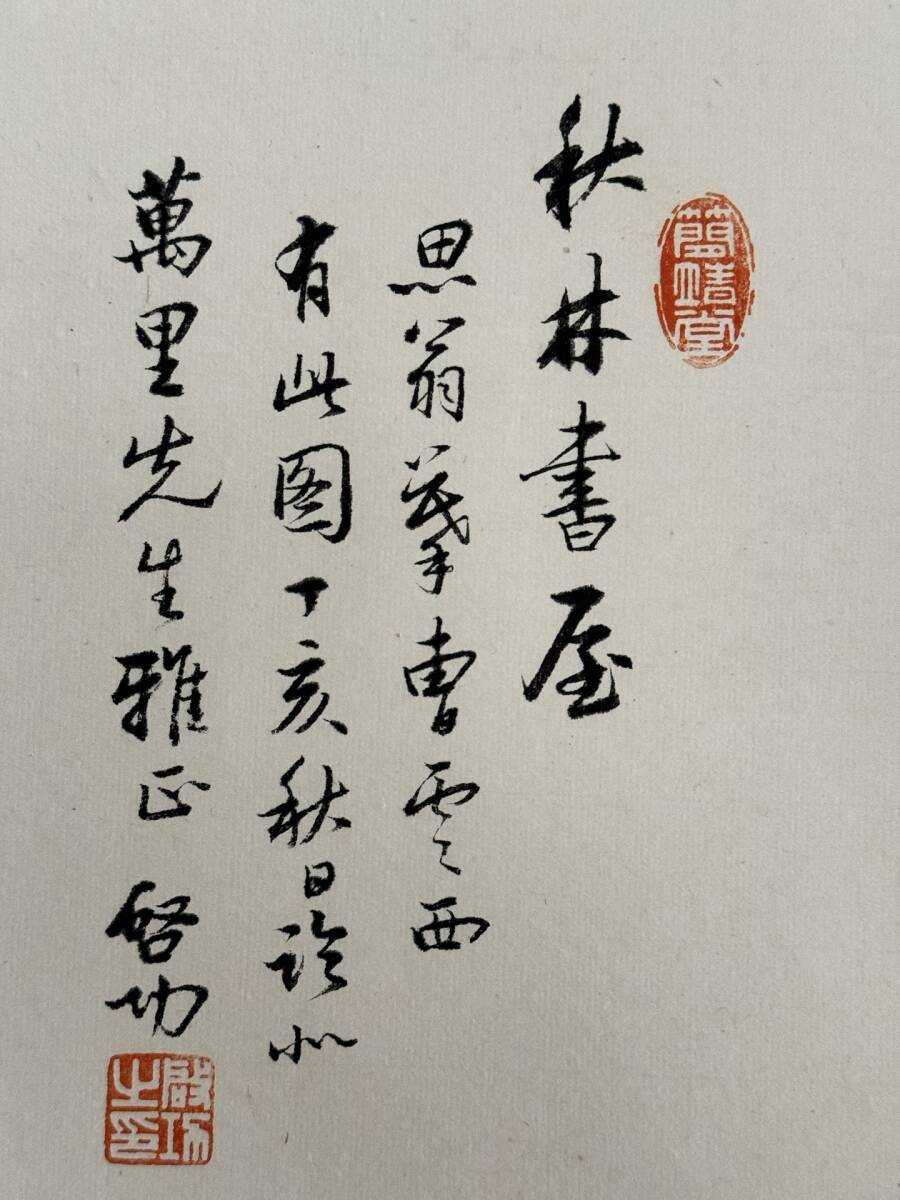 簡靖堂
秋林書屋
思翁摹曹雲西
有此图丁亥秋日臨似
萬里先生雅正 啓功
啟功之印